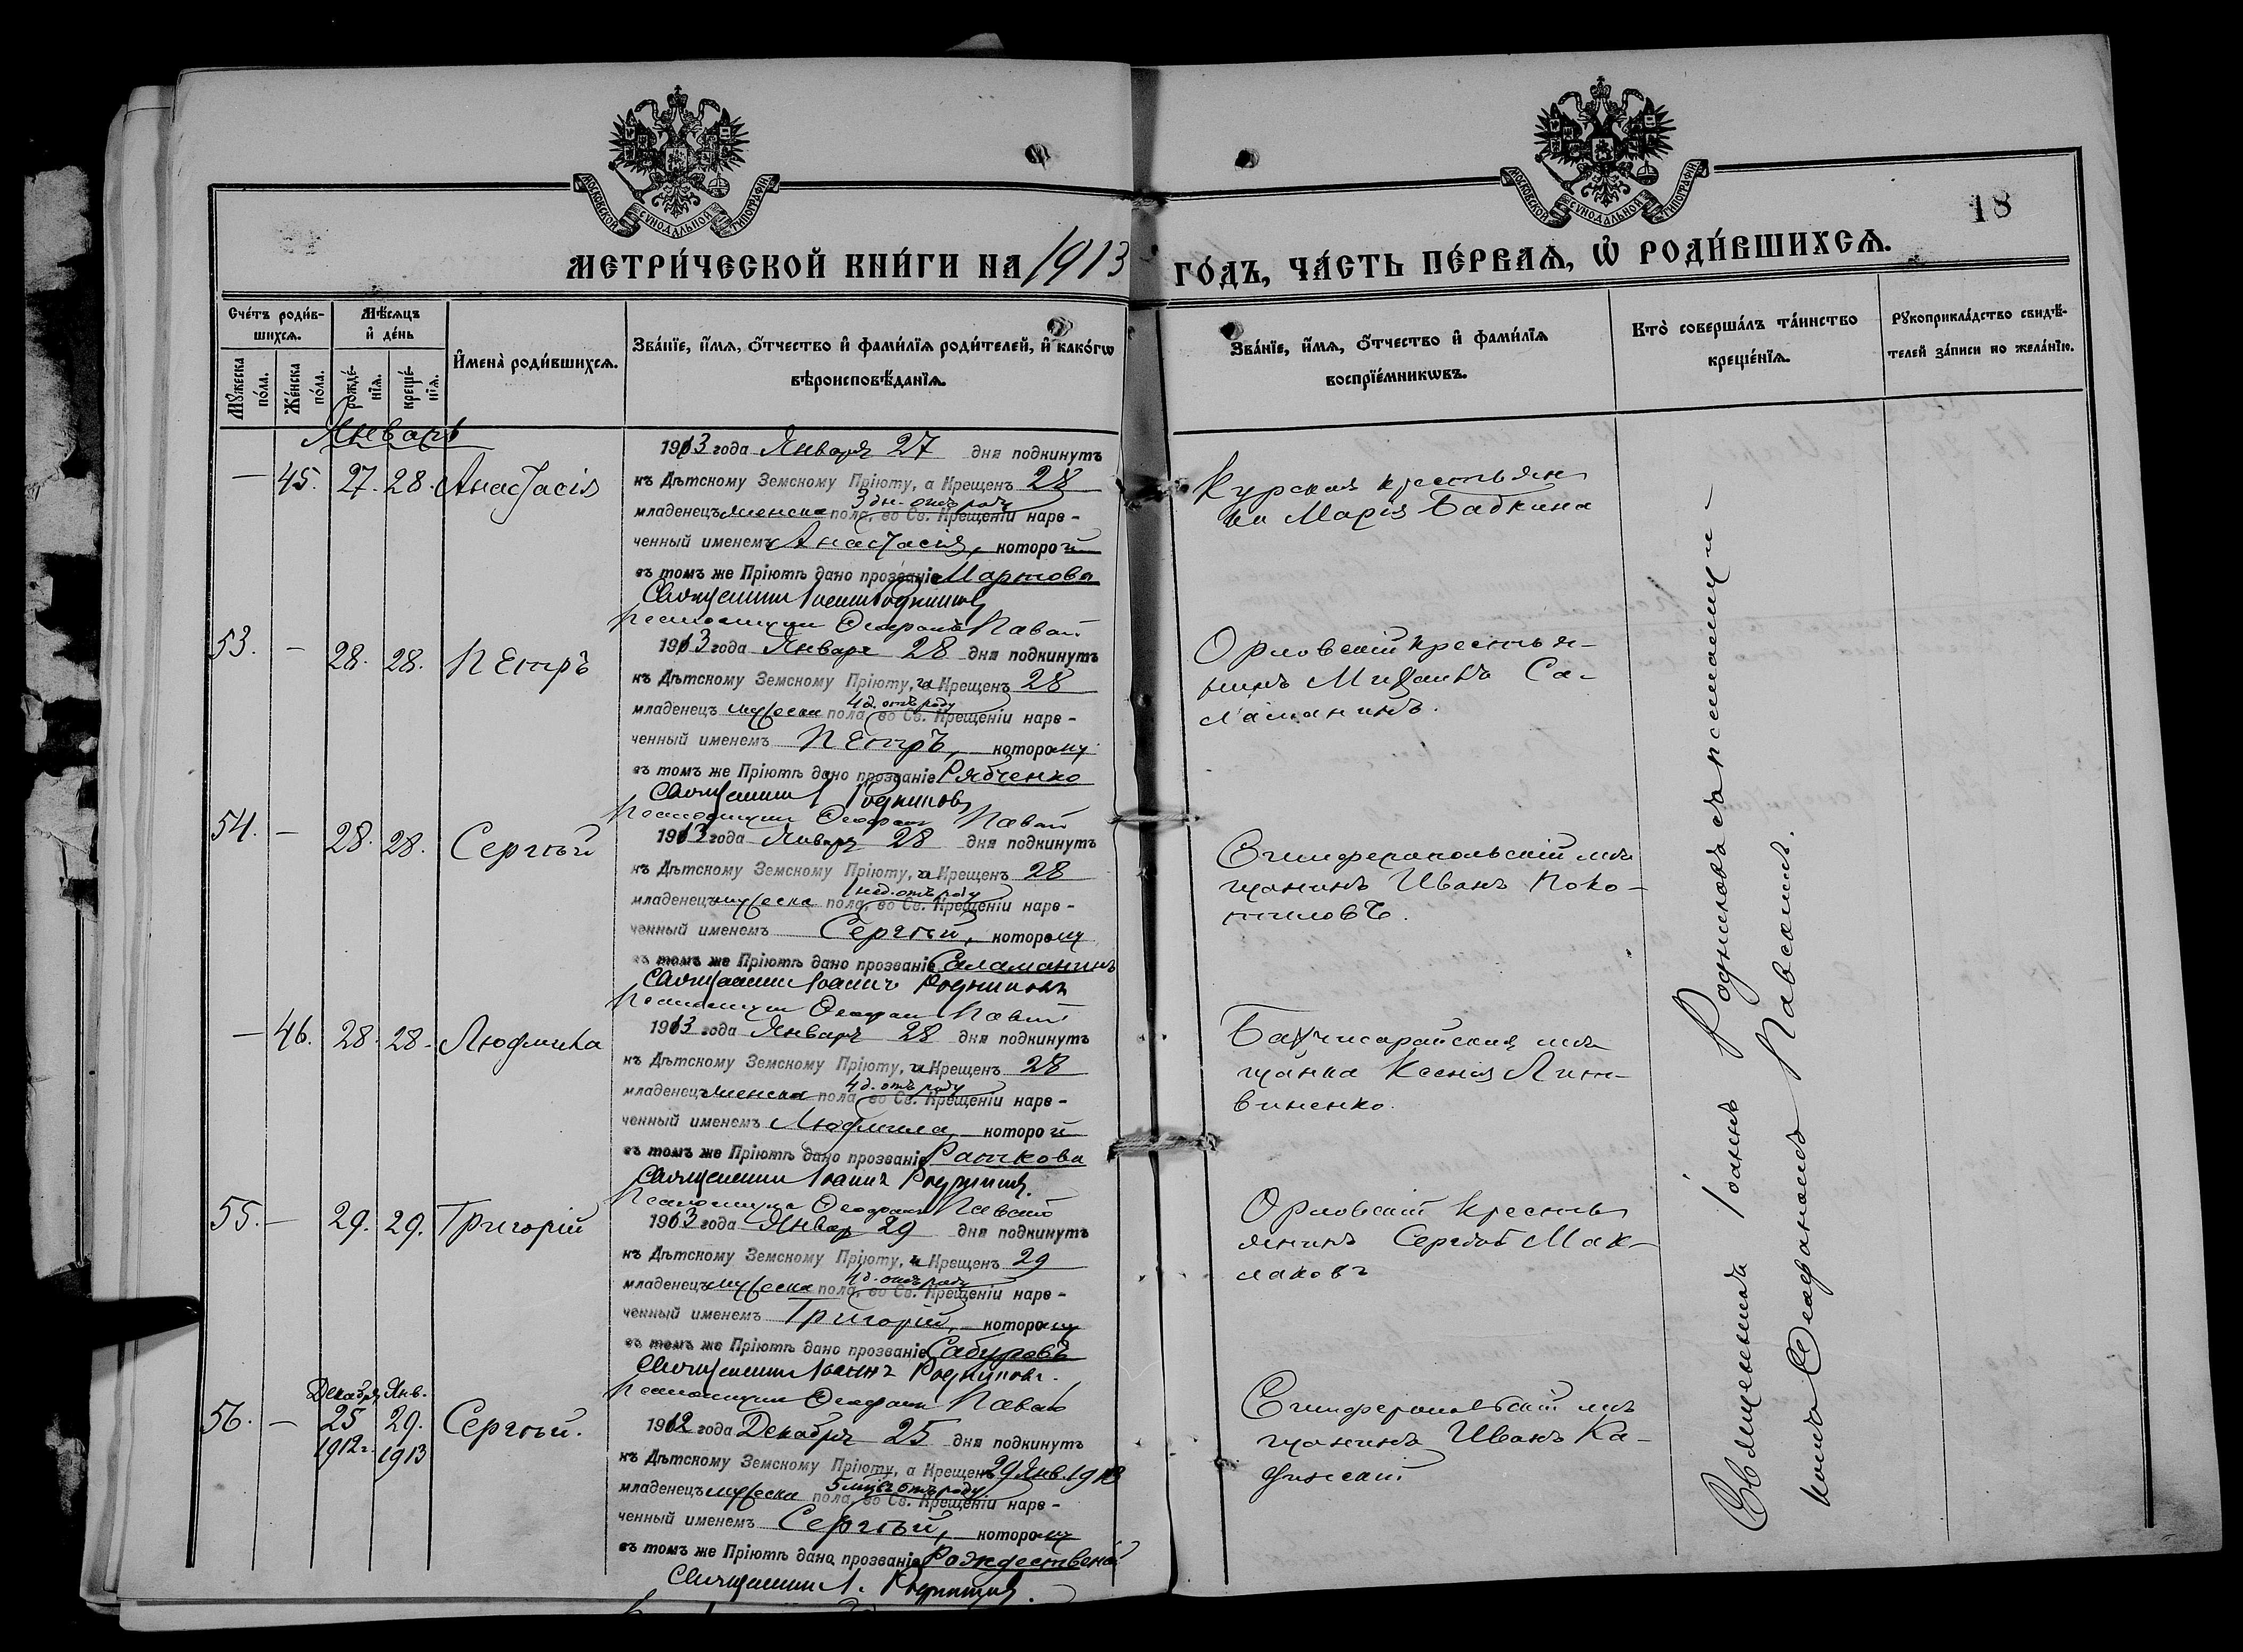 МОСКОВСКОЙ СУНОДАЛЬНОЙ ТИПОГРАФІИ
МОСКОВСКОЙ СУНОДАЛЬНОЙ ТИПОГРАФІИ
18
МЕТРИ́ЧЕСКОЙ КНИ́ГИ НА 1913 ГО́ДЪ, ЧА́СТЬ ПЕ́РВАЯ, Ѡ РОДИ́ВШИХСЯ.
Сче́тъ роди́в-
шихся.
Мѣ́сяцъ
и де́нь
Мꙋжеска по́ла.
Же́нска по́ла.
рожде́-
нія.
креще́-
нія.
Имена̀ роди́вшихся.
Зва́нїе, и́мя, о́тчество и фами́лїя роди́телей, и како́гѡ
вѣроисповѣ́данїя.
Зва́нїе, и́мя, о́тчество и фами́лїя
воспрїе́мникѡвъ.
Кто̀ соверша́лъ та́инство
креще́нїя.
Рꙋкоприкла́дство свидѣ́-
телей за́писи по жела́нїю.
Январь
— 45. 27. 28. Анастасія
1913 года Января 27 дня подкинутъ
къ Дѣтскому Земскому Пріюту, а Крещенъ 28
3 дн. отъ роду
младенецъ женска пола, во Св. Крещеніи наре-
ченный именемъ Анастасія, которой
въ томъ же Пріютѣ дано прозваніе Мартова
Священникъ Іоаннъ Родниковъ
Псаломщикъ Ѳеофанъ
Курская крестьян
ка Марія Бабкина
53. — 28. 28. Петръ
1913 года Января 28 дня подкинутъ
къ Дѣтскому Земскому Пріюту, и Крещенъ 28
4 д. отъ роду
младенецъ мужеска пола, во Св. Крещеніи наре-
ченный именемъ Петръ, которому
въ томъ же Пріютѣ дано прозваніе Рябченко
Священникъ І Родниковъ
Псаломщикъ Ѳеофан
Орловскій крестья-
нинъ Михаилъ Са-
ламанинъ.
54. — 28. 28. Сергѣй
1913 года Января 28 дня подкинутъ
къ Дѣтскому Земскому Пріюту, и Крещенъ 28
1 нед. отъ роду
младенецъ мужеска пола, во Св. Крещеніи наре-
ченный именемъ Сергѣй, которому
въ томъ же Пріютѣ дано прозваніе Саламанинъ
Священникъ Іоаннъ Родниковъ
Псаломщикъ Ѳеофан
Симферопольскій мѣ
щанинъ Иванъ Поко-
тиловъ.
— 46. 28. 28. Людмила
1913 года Января 28 дня подкинутъ
къ Дѣтскому Земскому Пріюту, и Крещенъ 28
4 д. отъ роду
младенецъ женска пола, во Св. Крещеніи наре-
ченный именемъ Людмила, которой
въ томъ же Пріютѣ дано прозваніе Раткова
Священникъ Іоаннъ Родниковъ
Псаломщикъ Ѳеофан
Бахчисарайская мѣ
щанка Ксенія Лит-
виненко.
55. — 29. 29. Григорій
1913 года Январ 29 дня подкинутъ
къ Дѣтскому Земскому Пріюту, и Крещенъ 29
4 д. отъ роду
младенецъ мужеска пола, во Св. Крещеніи наре-
ченный именемъ Григорій, которому
въ томъ же Пріютѣ дано прозваніе Сабуровъ
Священникъ Іоаннъ Родниковъ.
Псаломщикъ Ѳеофан
Орловскій кресть
янинъ Сергѣй Мак-
лаковъ
Декабря Янв.
56. — 25 29. Сергѣй.
1912 г. 1913
1912 года Декабря 25 дня подкинутъ
къ Дѣтскому Земскому Пріюту, а Крещенъ 29 Янв. 1913
5 мцвъ отъ роду
младенецъ мужеска пола, во Св. Крещеніи наре-
ченный именемъ Сергѣй, которому
въ томъ же Пріютѣ дано прозваніе Рождественскій
Священникъ І. Родниковъ.
Симферопольскій мѣ
щанинъ Иванъ Ка-
Священникъ Іоаннъ Родниковъ съ псаломщи-
комъ Ѳеофаномъ